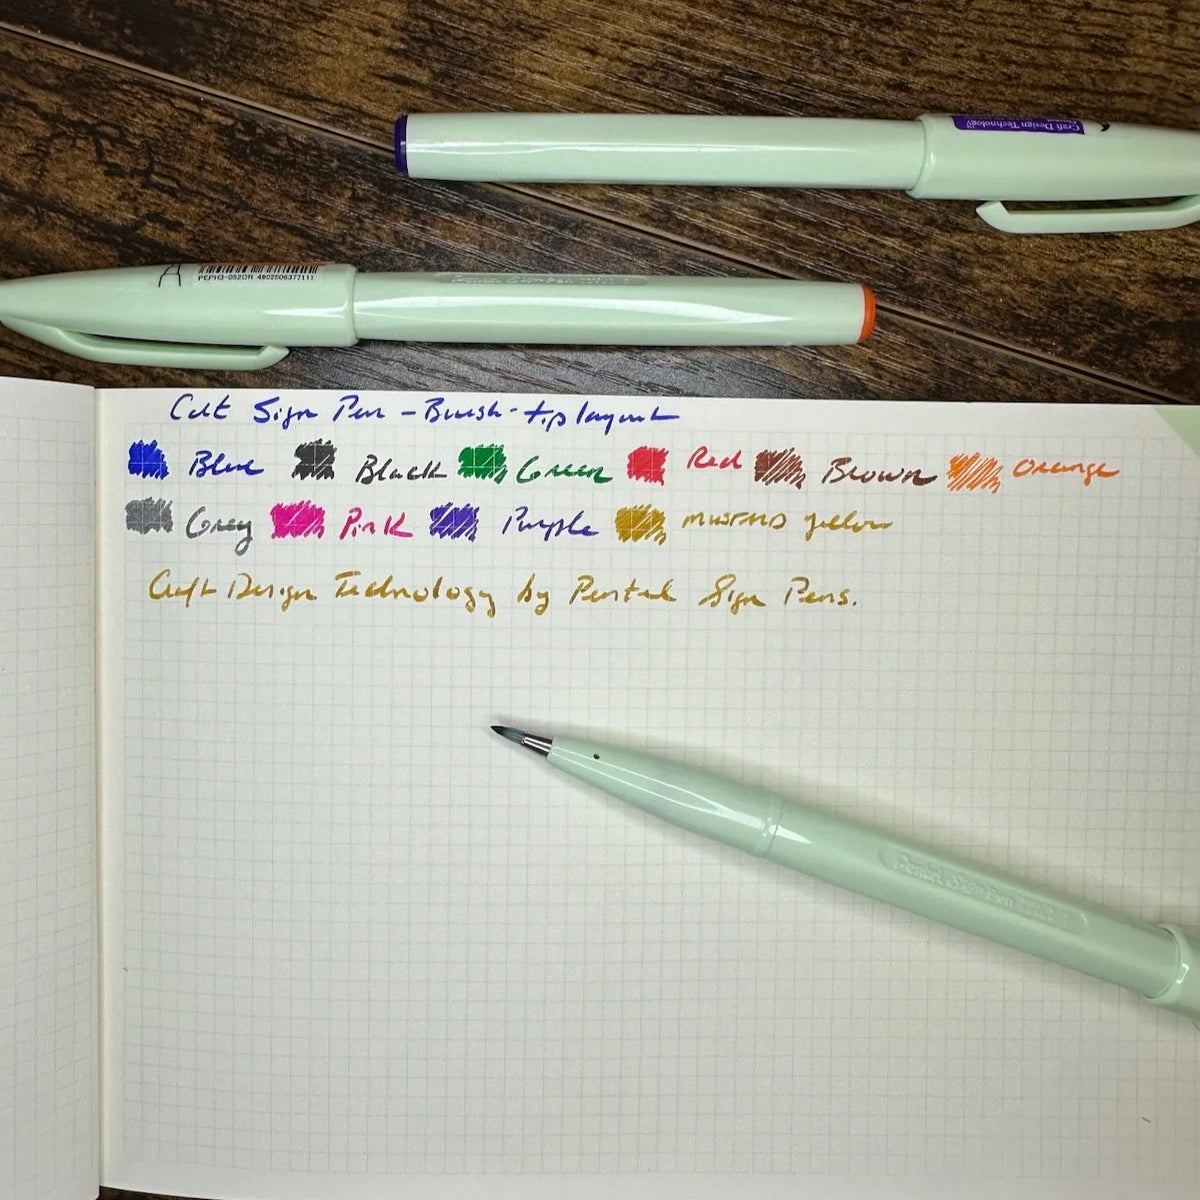 Craft Design Technology
PEPH3-052OR 480250637711
Cdt Sign Pen - Brush-tip layout
Blue Black Green Red Brown Orange
Grey Pink Purple mustard yellow
Craft Design Technology by Pentel Sign Pens.
Pentel Sign Pen